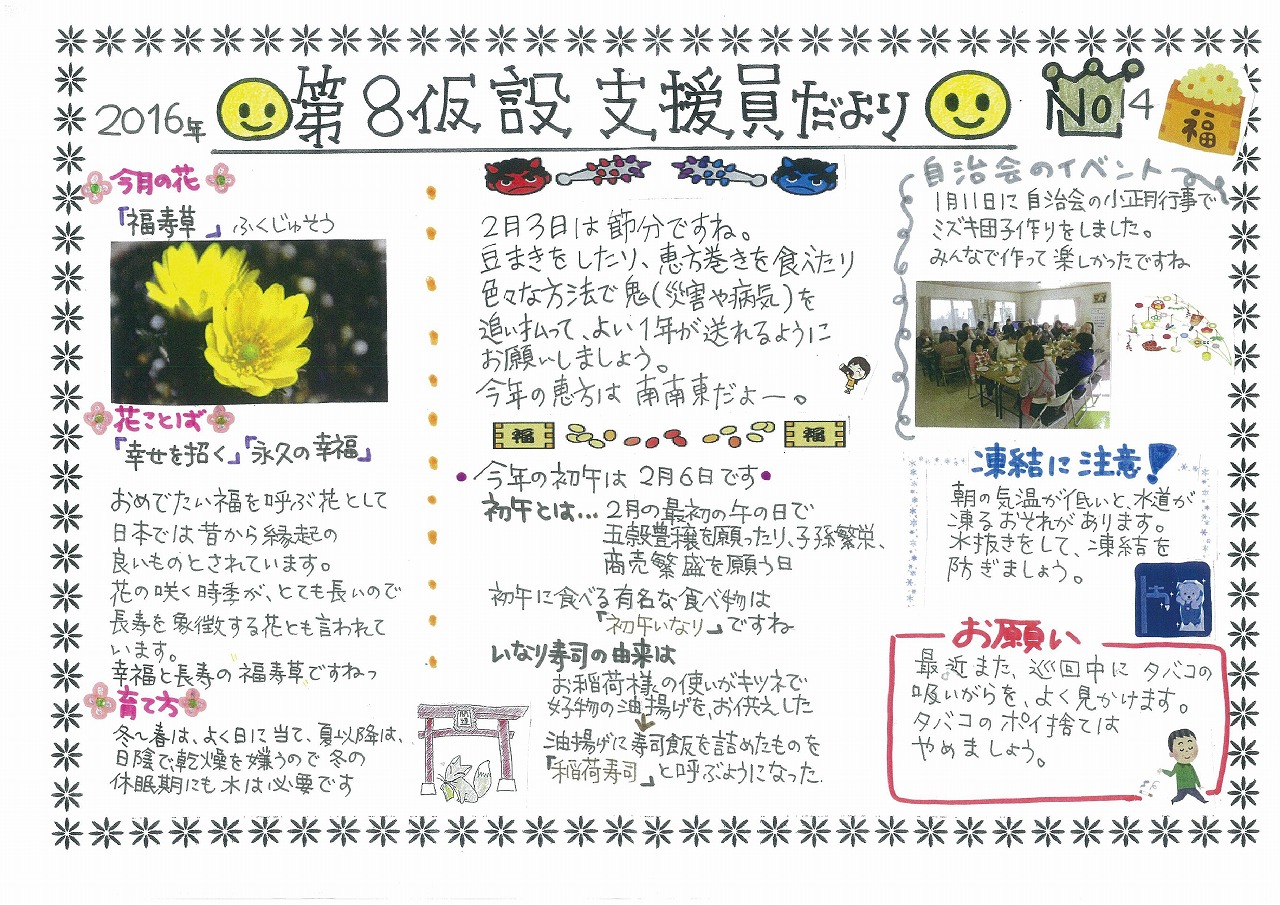 2016年
第8仮設 支援員だより
No 4
福
今月の花
「福寿草」 ふくじゅそう
花ことば
「幸せを招く」「永久の幸福」
おめでたい福を呼ぶ花として
日本では昔から縁起の
良いものとされています。
花の咲く時季が、とても長いので
長寿を象徴する花とも言われて
います。
幸福と長寿の“福寿草”ですねっ
育て方
冬〜春は、よく日に当て、夏以降は、
日陰で、乾燥を嫌うので冬の
休眠期にも水は必要です
2月3日は節分ですね。
豆まきをしたり、恵方巻きを食べたり
色々な方法で鬼(災害や病気)を
追い払って、よい1年が送れるように
お願いしましょう。
今年の恵方は 南南東だよー。
福
福
今年の初午は 2月6日です
初午とは… 2月の最初の午の日で
五穀豊穣を願ったり、子孫繁栄、
商売繁盛を願う日
初午に食べる有名な食べ物は
「初午いなり」ですね
いなり寿司の由来は
お稲荷様の使いがキツネで
好物の油揚げを、お供えした
油揚げに寿司飯を詰めたものを
「稲荷寿司」と呼ぶようになった.
自治会のイベント
1月11日に自治会の小正月行事で
ミズキ団子作りをしました。
みんなで作って楽しかったですね
凍結に注意!
朝の気温が低いと、水道が
凍るおそれがあります。
水抜きをして、凍結を
防ぎましょう。
お願い
最近また、巡回中に タバコの
吸いがらを、よく見かけます。
タバコのポイ捨ては
やめましょう。